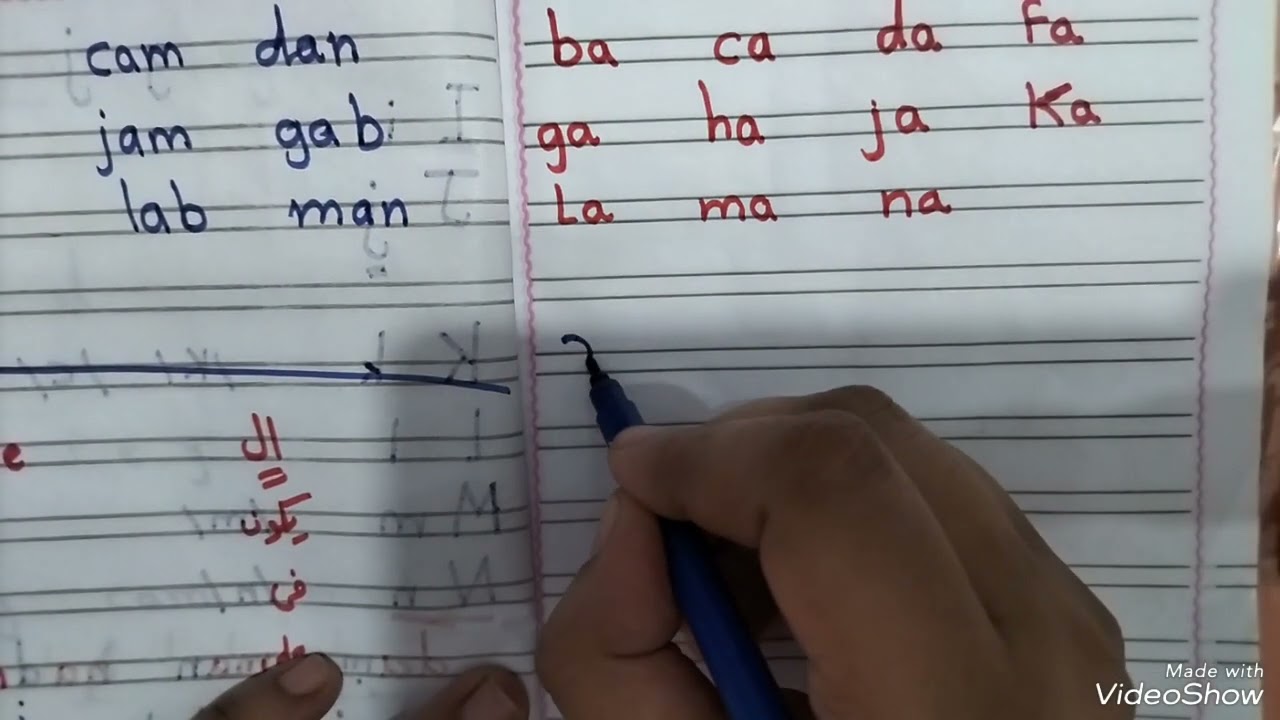 cam dan
jam gab
lab man
ال
e
يكون
فى
ba ca da Fa
ga ha ja Ka
La ma na
Made with
VideoShow